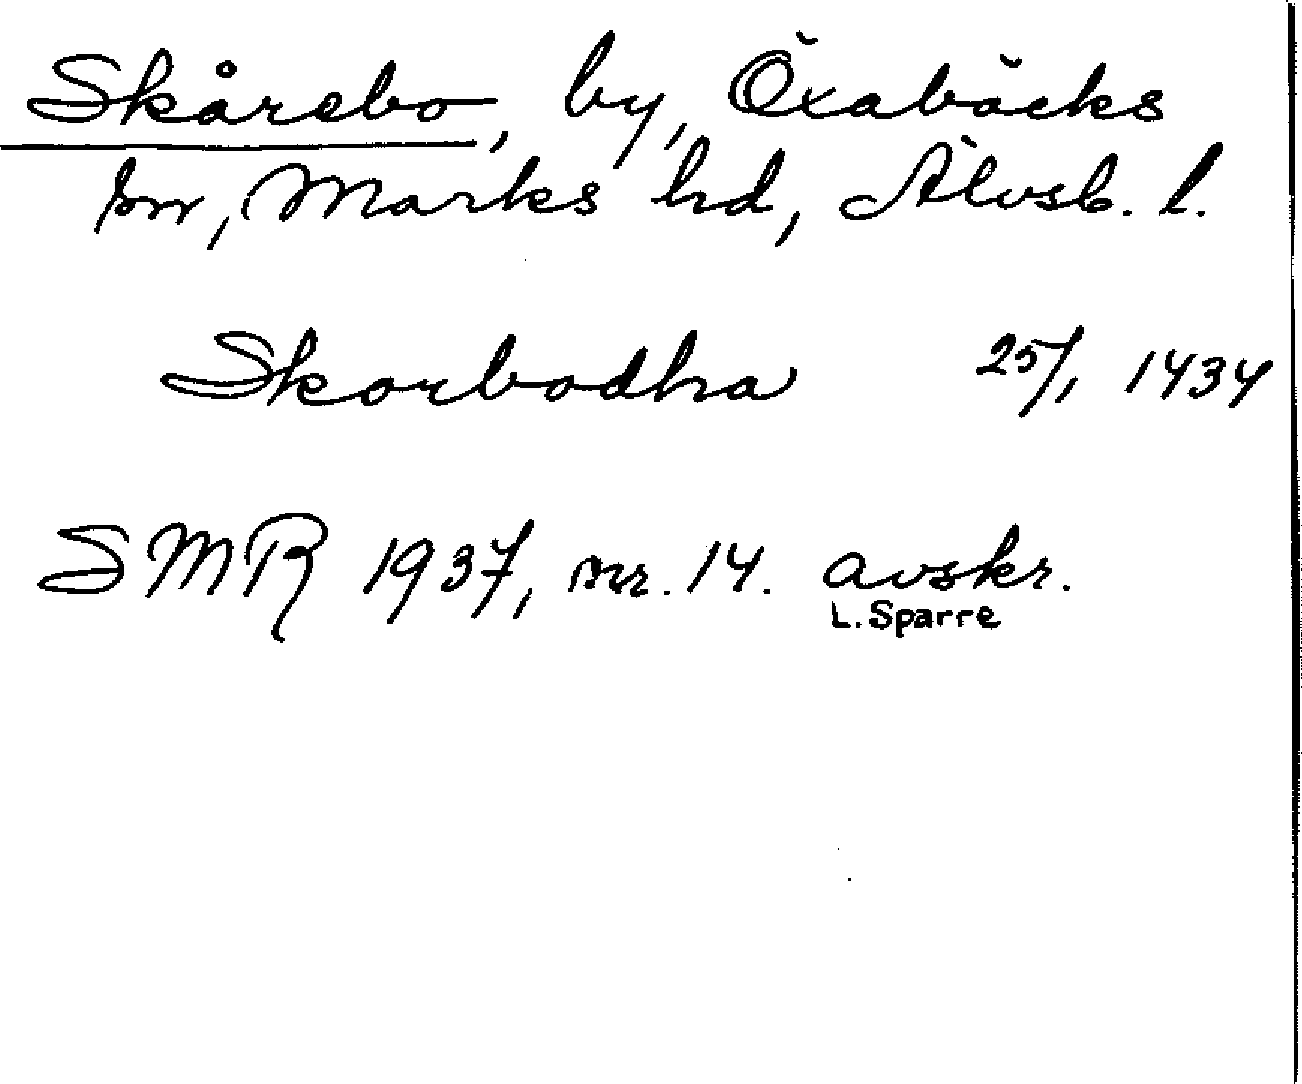 Skårebo, by, Öxabäcks
sn, Marks hd, Älvsb. l.
Skorbodha 25/1 1434
SMR 1937, nr. 14. avskr.
L. Sparre